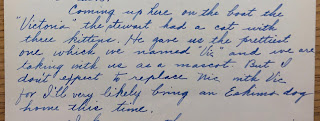 Coming up here on the boat the
"Victoria" the stewart had a cat with
three kittys. He gave us the prettiest
one which we named "Vic" and we are
taking with us as a mascot. But I
don't expect to replace Nic with Vic
for I'll very likely bring an Eskimo dog
home this time.